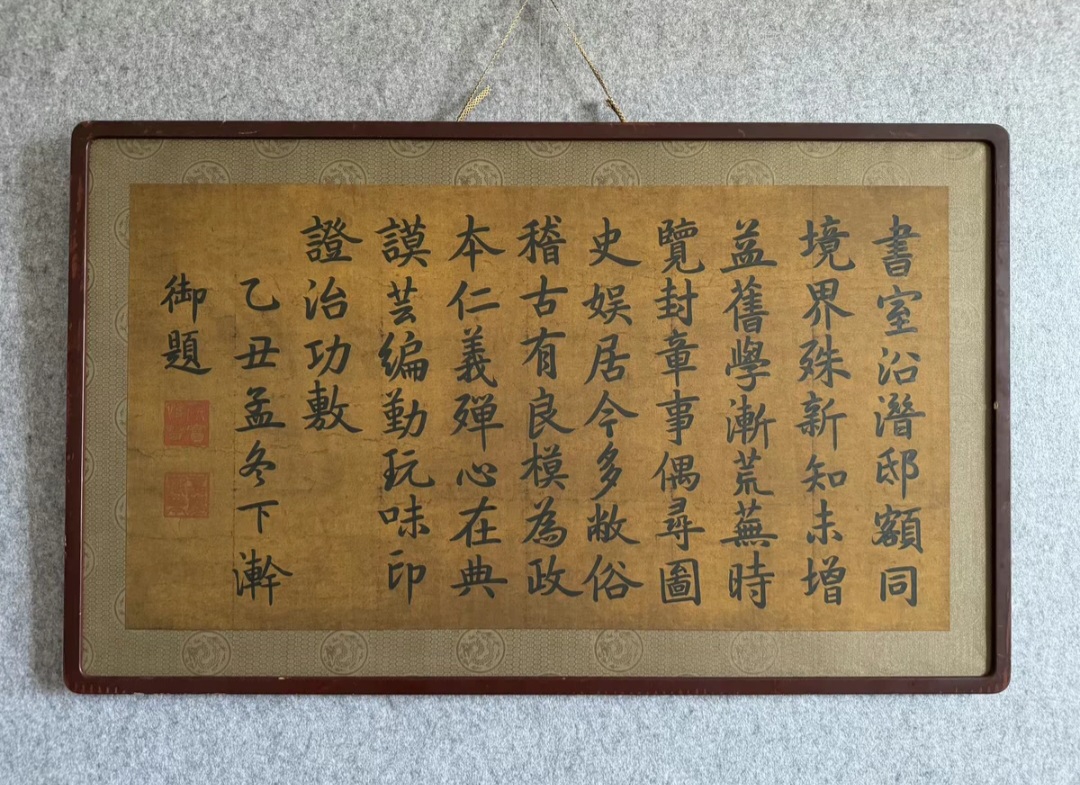 書室沿潛邸額同
境界殊新知未增
益舊學漸荒蕪時
覽封章事偶尋圖
史娱居今多敝俗
稽古有良模為政
本仁義殫心在典
謨芸編勤玩味印
證治功敷
乙丑孟冬下澣
御題